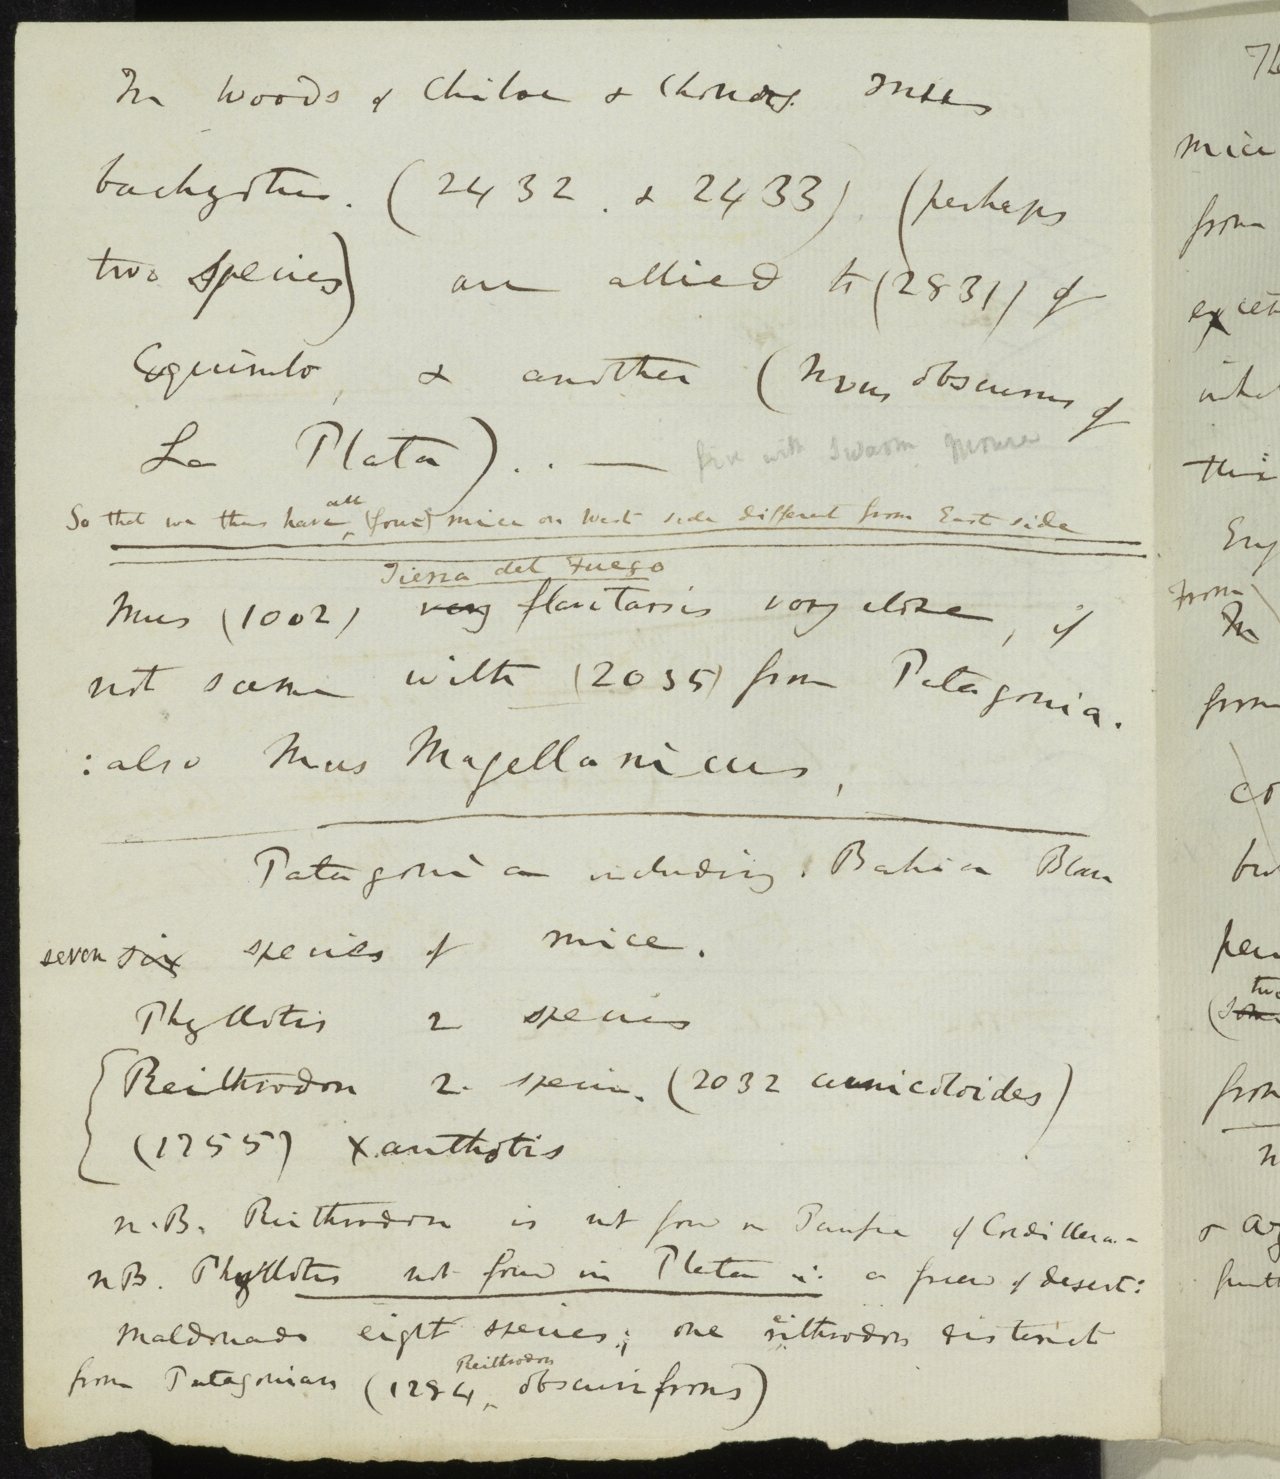 In woods of Chiloe & Chonos. Mus
brachyotus. (2432. & 2433) (perhaps
two species) are allied to (2831) of
Coquimbo, & another (Mus obscurus of
La Plata) .. —
So that we thus have all (four) mice on West side different from East side
Tierra del Fuego
Mus (1002) very flavitarsis very close, if
not same with (2035) from Patagonia.
: also Mus Magellanicus,
Patagonia including. Bahia Blan
seven six species of mice.
Phyllotis 2 species
Reithrodon 2. specie. (2032 cuniculoides)
(1255) Xanthotis
n.B. Reithrodon is not found in Pampa of Cordillera. -
nB. Phyllotis not found in Plata is a friend of desert:
Maldonado eight species; one reithrodon distinct
from Patagonian (1284 Reithrodon obscurifrons)
mice
from
this
from
from